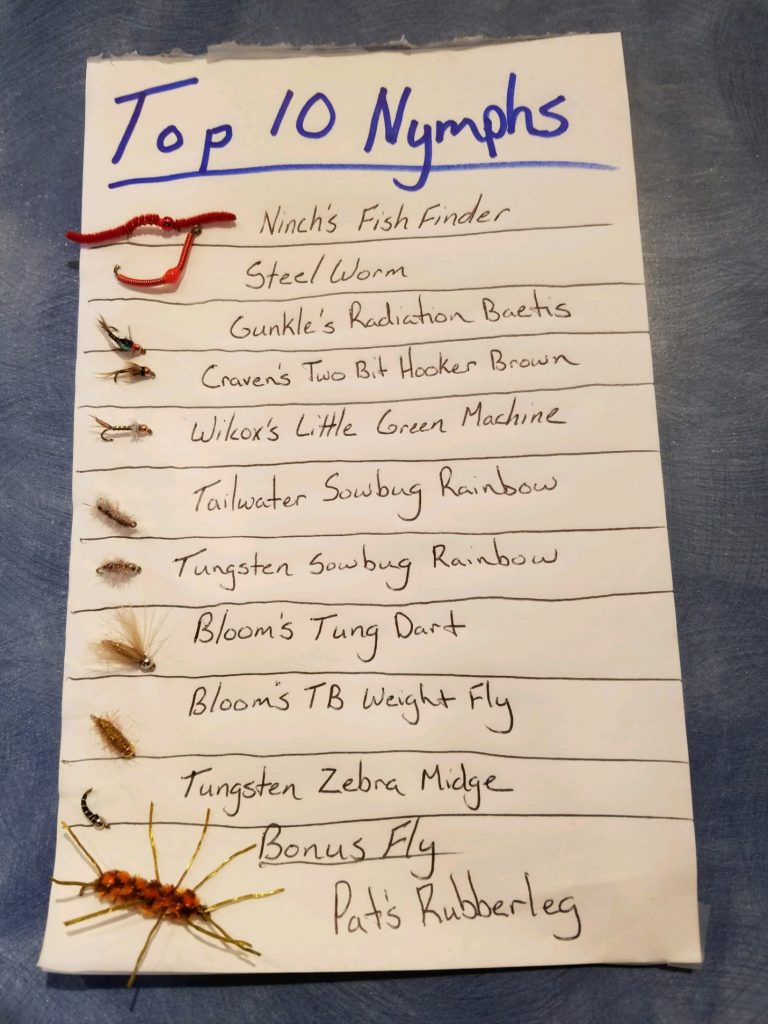 Top 10 Nymphs
Ninch's Fish Finder
Steel Worm
Gunkle's Radiation Baetis
Craven's Two Bit Hooker Brown
Wilcox's Little Green Machine
Tailwater Sowbug Rainbow
Tungsten Sowbug Rainbow
Bloom's Tung Dart
Bloom's TB Weight Fly
Tungsten Zebra Midge
Bonus Fly
Pat's Rubberleg